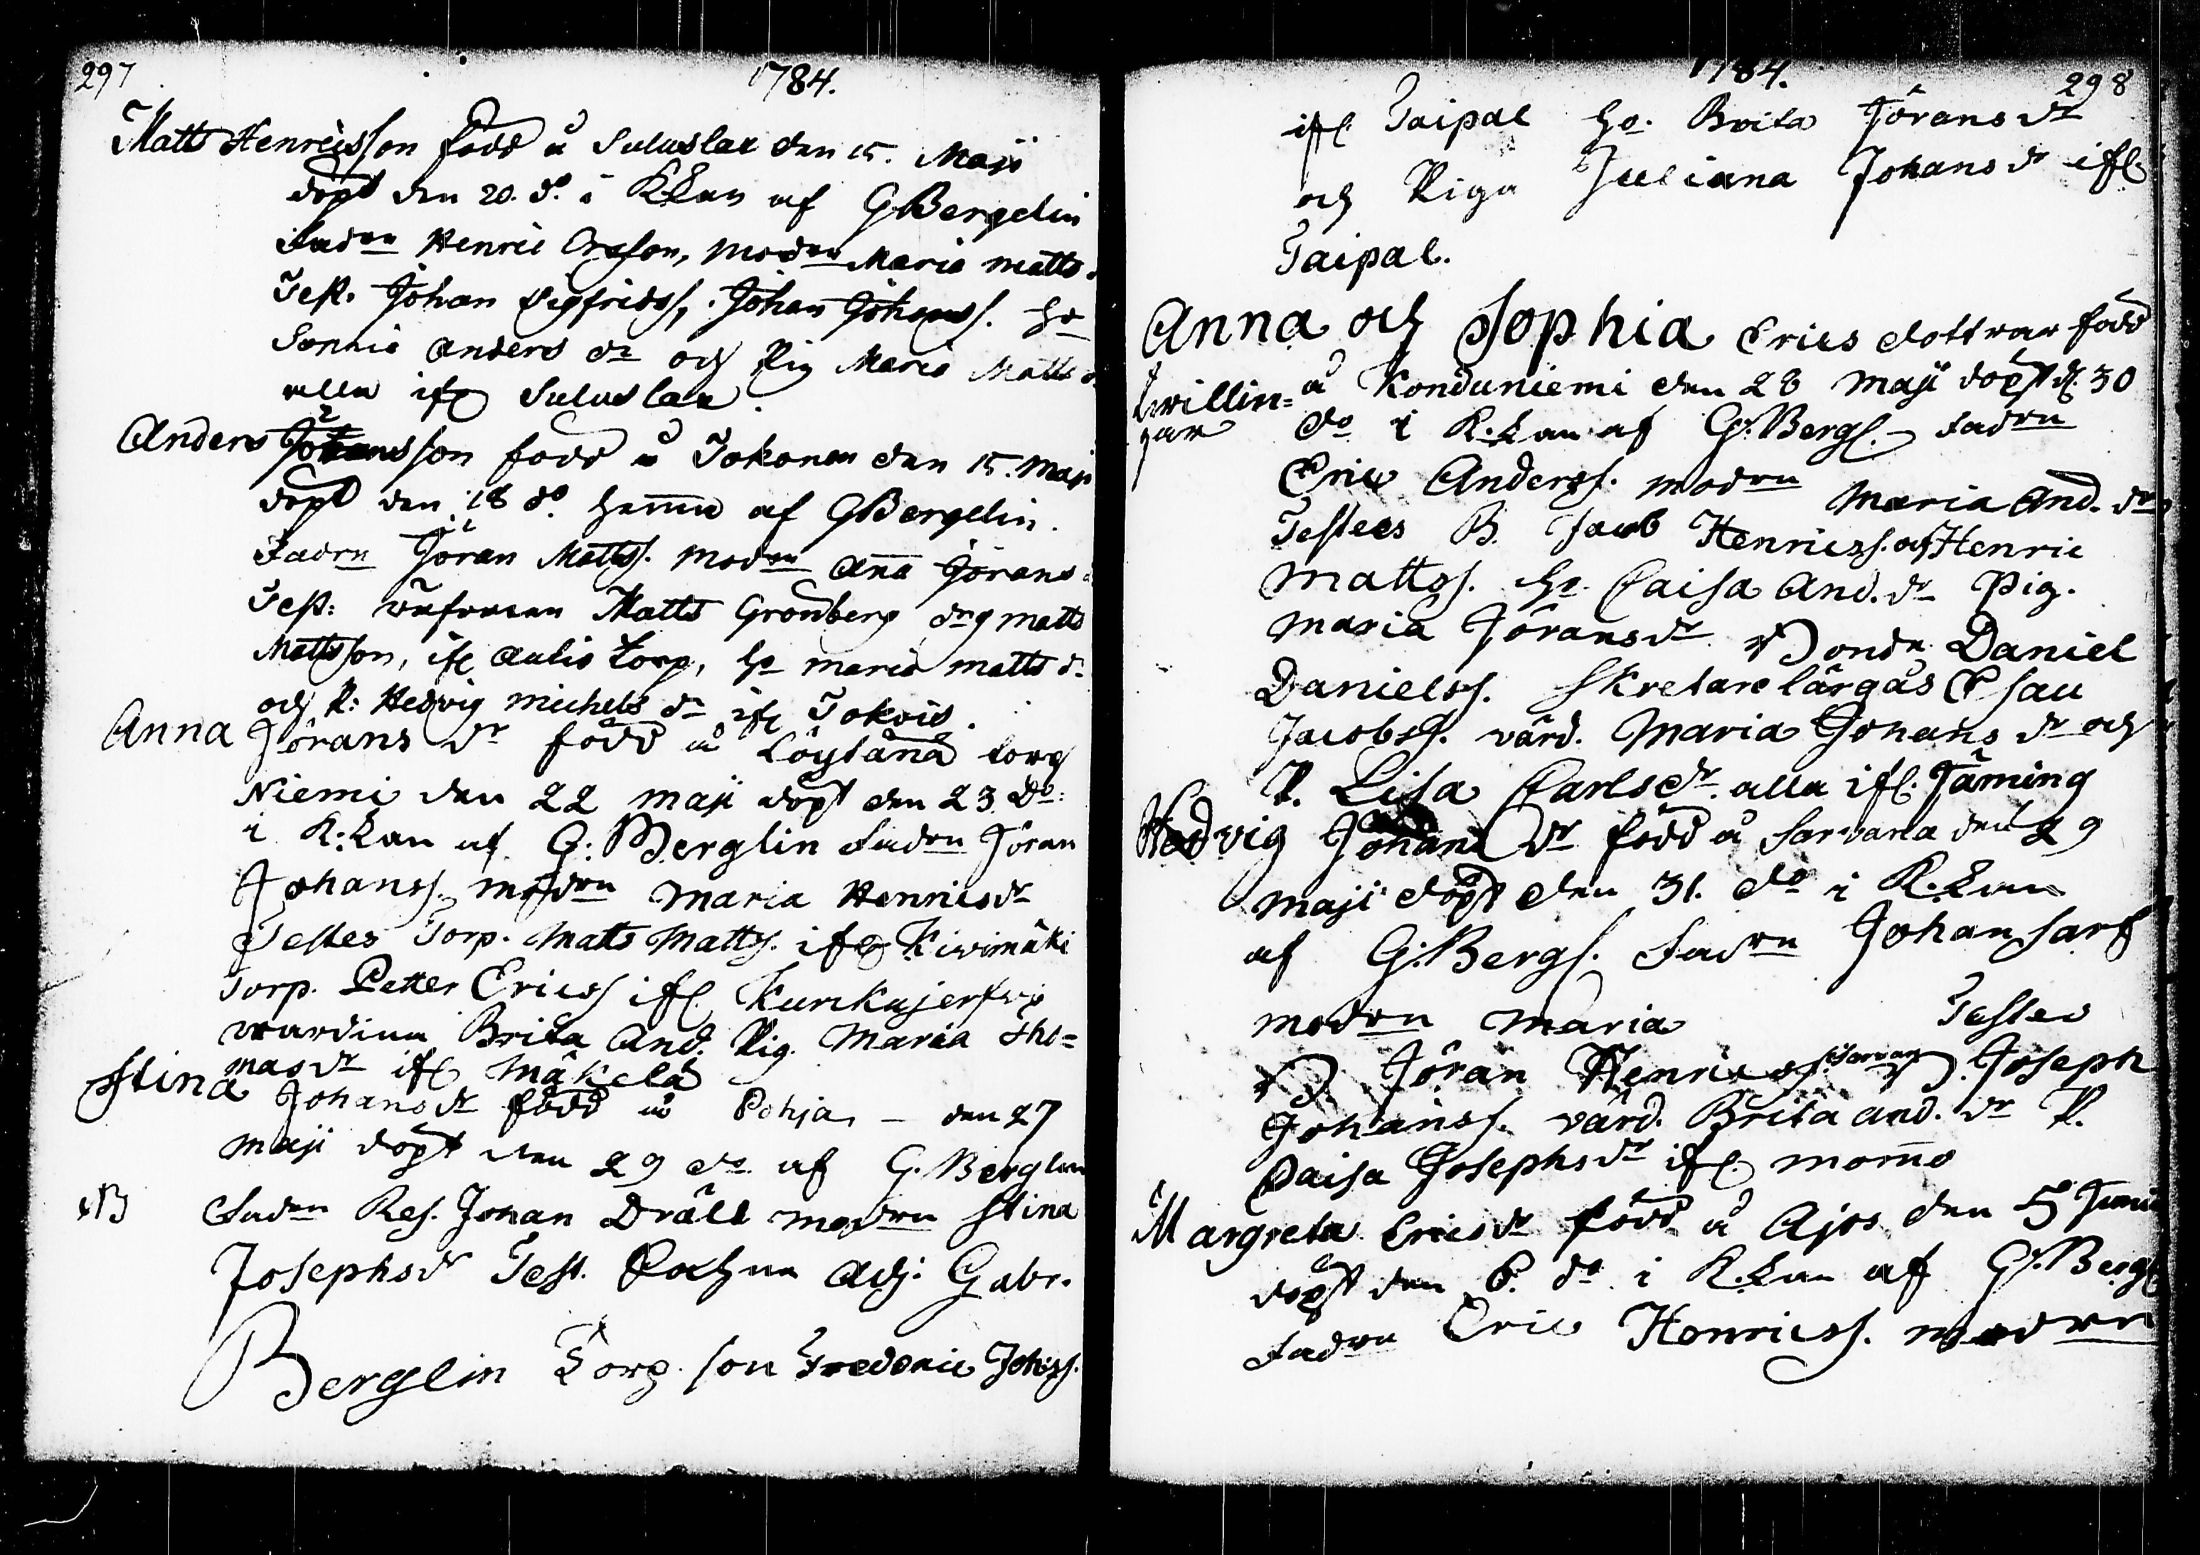 297
1784.
Matts Henricsson född å Suluslax den 15. Maji
döpt den 20. do. i K.Lan af G Bergelin
Fadrn Henric Ersson, modrn Maria matts
Test. Johan Sigfridss, Johan Johanss. ho
Annica Anders dr och Pig Maria Matts d
alla ifr Suluslax.
Anders Jöransson född å Jokonen den 15. Maji
döpt den 18 do. hemma af G Bergelin.
Fadrn Jöran Mattss. modrn Anna Jörans
Test: Matts Gronberg drg matts
Mattsson, ifr Aulis torp, ho maria matts d.
och P: Hedvig michels dr ifr Jokois.
Anna Jörans dr född å Löytänä torp
Niemi den 22 maji döpt den 23 do:
i K:Lan af G: Berglin Fadrn Jöran
Johanss. modrn maria Henricsdr
Testes Torp. Matts Mattss. ifr Kivimäki
Torp. Petter Ericss ifr. Kurckijerfwi
wärdinn Brita And. Pig. Maria Tho=
masdr ifr Mäkelä
Stina Johansdr född å Pohja – den 27
maji döpt den 29 do af G. Berglin
NB Fadrn Res. Johan Dräll modrn Stina
Josephsdr Test. Adj. Gabr.
Berglin Torp. son Frederic Johss.
1784. 298
ifr. Taipal ho. Brita Jörans dr
och Piga Juliana Johans dr ifr
Taipal.
Anna och Sophia Erics dottrar född
twillin= å Konduniemi den 28 maji döpt d. 30
gar do i K.Lan af G. Bergl. – Fadrn
Eric Anderss. modrn Maria And. dr
Testes B. Jacob Henricss. och Henric
Mattss. ho. Caisa And. dr Pig.
Maria Jöransdr Bondn Daniel
Danielss. Skretare lärgås Esau
Jacobss. värd. Maria Johans dr och
P. Lisa Carlsdr. alla ifr. Täming
Hedvig Johans dr född å Sarvana den 29
maji döpt den 31. do i K.Lan
af G: Bergl. Fadrn Johan Sarf
modrn Maria Testes
B Jöran Henricss. Sarvan B. Joseph
Johanss. värd. Brita And. dr P.
Caisa Josephsdr ifr. Mommo
Margreta Ericsdr född å Ajos den 5 Junii
döpt den 6. do i K.Lan af G. Bergl
Fadrn Eric Henricss. modrn